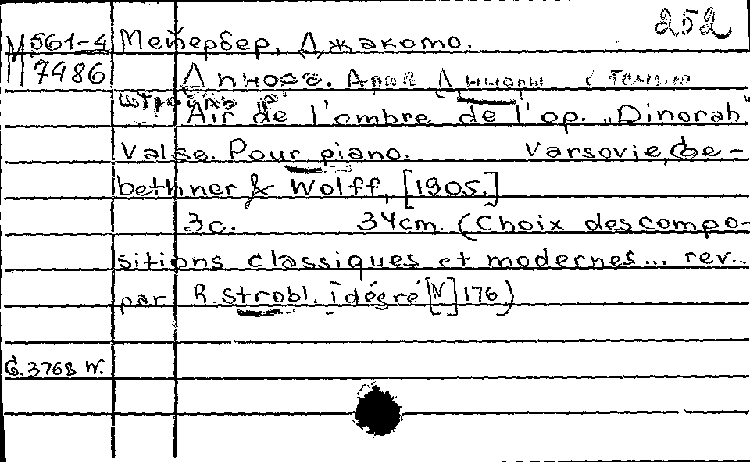 252
М 561-4 Мейербер, Джакомо.
7486 Динора. Ария Диноры (тень)
Штробль Р.
Air de l'ombre de l'op. „Dinorah"
Valse. Pour piano. Varsovie, Ge-
bethner & Wolff, [1905.]
3с. 34cm. (Choix des compo-
sitions classiques et modernes... rev..
par R. Strobl. I degré [N] 176)
G. 3768 W.